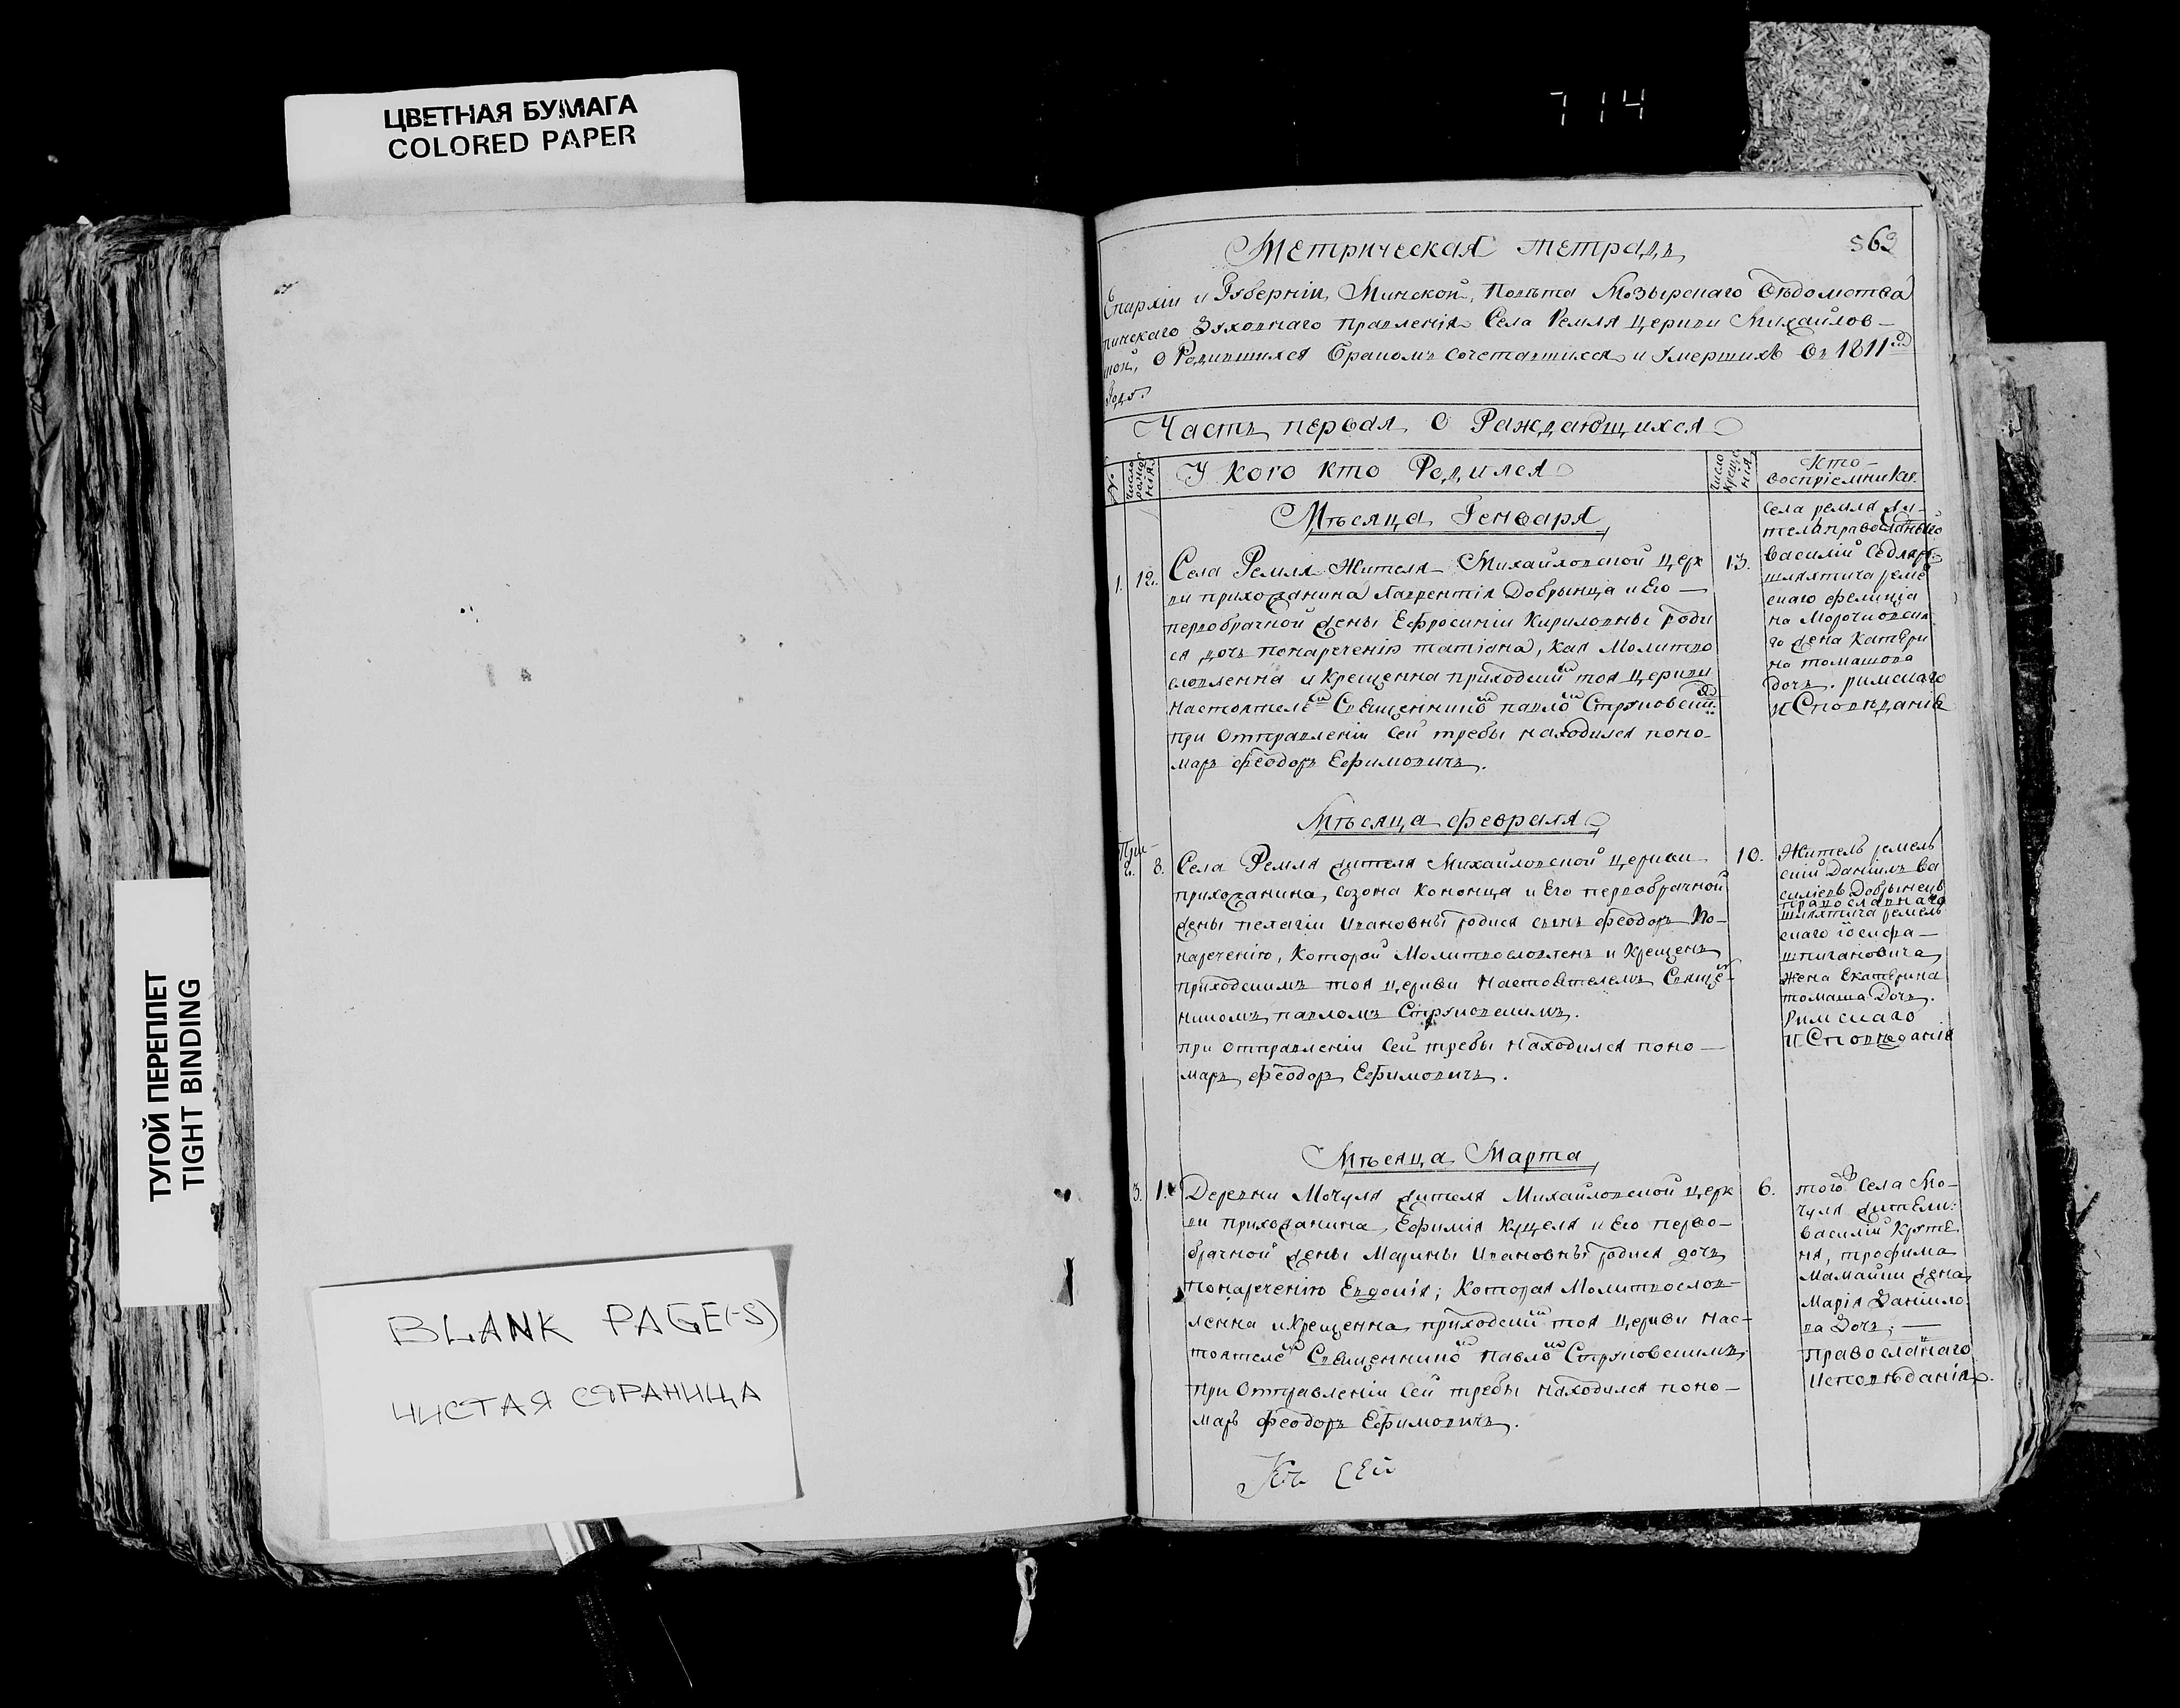 ЦВЕТНАЯ БУМАГА
COLORED PAPER
714
ТУГОЙ ПЕРЕПЛЕТ
TIGHT BINDING
BLANK PAGE(-S)
ЧИСТАЯ СТРАНИЦА
563
Метрическая тетрадь
Епархіи и Губерніи Минской, Повѣта Мозырскаго Вѣдомства
пинскаго Духовнаго правленія Села Ремля Церкви Михайлов-
ской, О Родившихся Бракомъ сочетавшихся и Умершихъ Въ 1811
Году
Часть первая О Раждающихся
№
число рожденія
У кого кто Родился
Число крещенія
Кто воспріемники
Мѣсяца Генваря
1. 12. Села Ремля Жителя Михайловской Церк
ви прихожанина Лаврентія Добрынца и Его
первобрачной жены Ефросиніи Кириловны роди
ся дочь понареченію татіана, кая Молитво
словленна и Крещенна приходским тоя Церкви
Настоятелем Священником павлом Струковским
при Отправленіи Сей требы находился поно-
марь феодоръ Ефимовичъ.
13.
Села ремля жи-
теля православнаго
Василій Седляръ
шляхтича реме
скаго фелиція
на Морочковска
го жена Катери
на томашова
Дочь. римскаго
ИСповѣданія
Мѣсяца февраля
2. 8. Села Ремля жителя Михайловской Церкви
прихожанина, созона Кононца и Его первобрачной
жены пелагіи Ивановны родися сынъ феодоръ По-
нареченію, Которой Молитвословленъ и Крещенъ
приходскимъ тоя церкви Настоятелемъ Свяще-
никомъ павломъ Струковскимъ.
при Отправленіи Сей требы находился поно-
марь феодоръ Ефимовичъ.
10.
Житель ремель
скій Даніилъ Ва
силіевъ Добрынецъ
православнаго
шляхтича ремель
скаго іосифа
шпигановича
Жена Екатерина
томаша Дочь.
Римскаго
ИСповѣданія
Мѣсяца Марта
3. 1. Деревни Мочуля жителя Михайловской церк
ви прихожанина, Ефимія Куцеля и Его перво-
брачной жены Марины Ивановны родися дочь
понареченію Евдокія; Которая Молитвослов-
ленна и Крещенна приходским тоя Церкви Нас-
тоятелем Священником Павлом Струковскимъ,
при Отправленіи Сей требы находился поно-
марь феодоръ Ефимовичъ.
6.
того Села Мо-
чуля жители:
Василій Круте
ня, трофима
Мамайки жена
Марія Даніило
ва Дочь;
православнаго
Исповѣданія.
Къ Сей